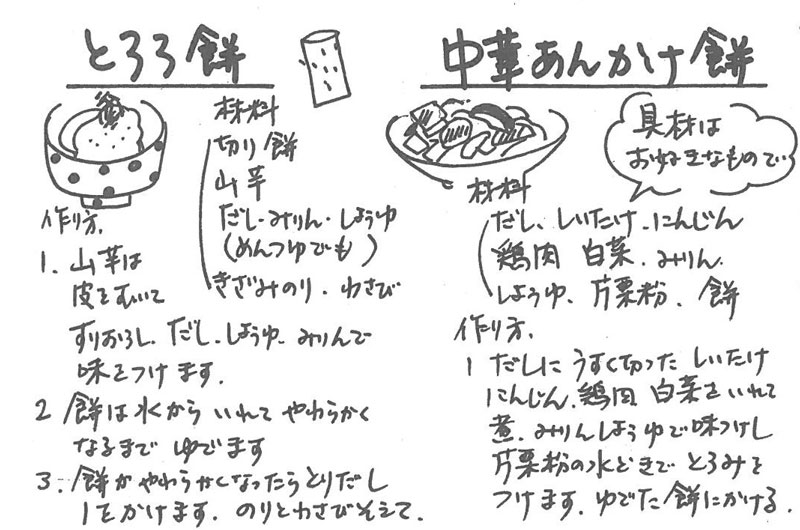 とろろ餅
材料
切り餅
山芋
だし・みりん・しょうゆ
(めんつゆでも)
きざみのり・わさび
作り方
1. 山芋は
皮をむいて
すりおろし、だし、しょうゆ、みりんで
味をつけます。
2 餅は水からいれてやわらかく
なるまでゆでます
3. 餅がやわらかくなったらとりだし
1をかけます。のりとわさびそえて。
中華あんかけ餅
具材は
お好きなもので
材料
だし、しいたけ、にんじん
鶏肉 白菜、みりん、
しょうゆ、片栗粉、餅
作り方、
1 だしにうすく切ったしいたけ
にんじん、鶏肉 白菜をいれて
煮、みりんしょうゆで味つけし
片栗粉の水どきでとろみを
つけます。ゆでた餅にかける。